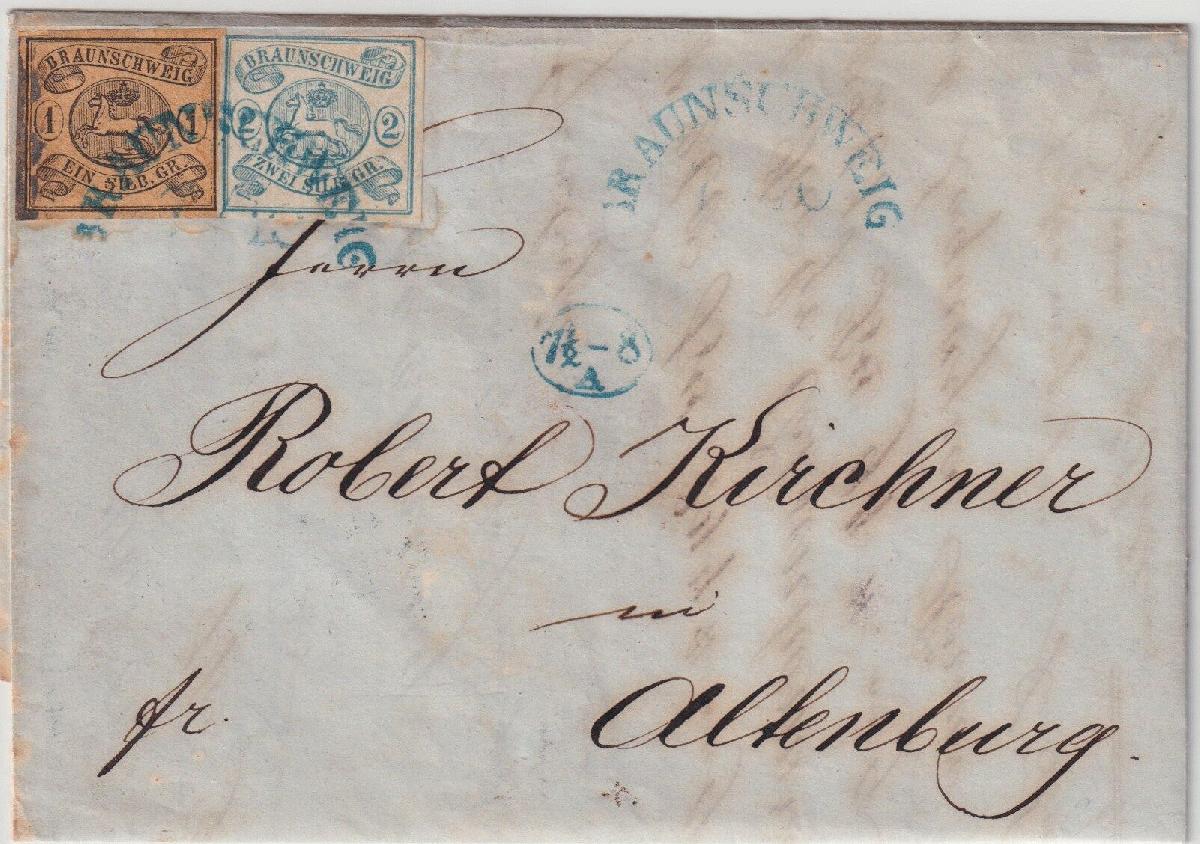 BRAUNSCHWEIG
1 1
EIN SILB. GR.
BRAUNSCHWEIG
2 2
ZWEI SILB. GR.
BRAUNSCHWEIG
BRAUNSCHWEIG
Herrn
7½–8
A
Robert Kirchner
in
fr.
Altenburg.